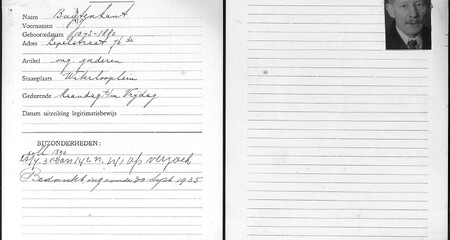 Naam Buijtenkant
Voornamen
Geboortedatum
Adres Lepelstraat 76
Artikel ong. goederen
Staanplaats Waterlooplein
Gedurende Maandag t/m Vrijdag
Datum uitreiking legitimatiebewijs
BIJZONDERHEDEN:
op verzoek
Bedankt ingaande 20 Sept 1935